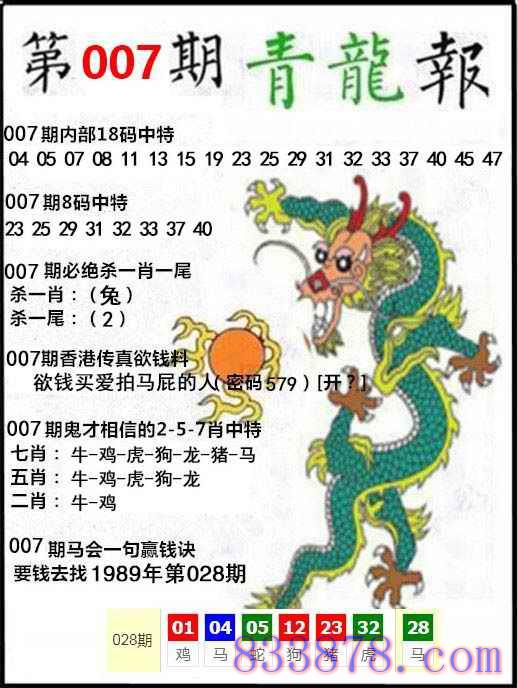 第007期青龍報
007期内部18码中特
04 05 07 08 11 13 15 19 23 25 29 31 32 33 37 40 45 47
007期8码中特
23 25 29 31 32 33 37 40
007期必绝杀一肖一尾
杀一肖：（兔）
杀一尾：（2）
007期香港传真欲钱料
欲钱买爱拍马屁的人（密码579）[开？]
007期鬼才相信的2-5-7肖中特
七肖：牛-鸡-虎-狗-龙-猪-马
五肖：牛-鸡-虎-狗-龙
二肖：牛-鸡
007期马会一句赢钱诀
要钱去找1989年第028期
028期 01 04 05 12 23 32 28
鸡 马 蛇 狗 猪 虎 马
833878.com